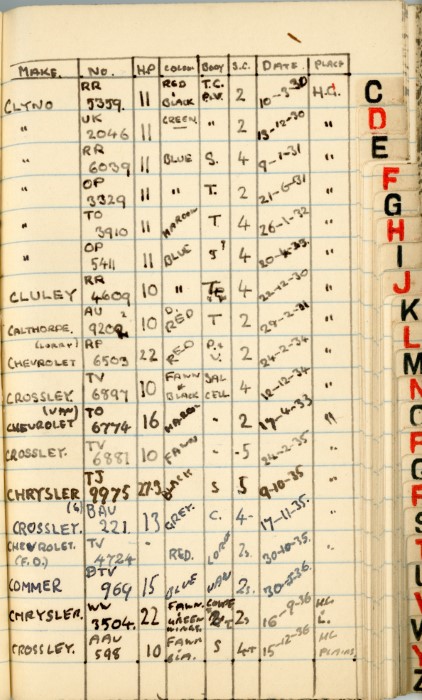 MAKE. NO. HP COLOUR BODY S.C. DATE. PLACE
CLYNO RR 5359. 11 RED & BLACK T.C. 2 10-3-30 H.G.
" UK 2046 11 GREEN " 2 13-12-30 "
" RR 6039 11 BLUE S. 4 9-1-31 "
" OP 3329 11 " T. 2 21-6-31 "
" TO 3910 11 MAROON T 4 26-1-32 "
" OP 5411 11 BLUE 4 "
CLULEY RR 4609 10 " 4 22-12-30 "
CALTHORPE. AU 10 RED T 2 "
(LORRY) CHEVROLET RP 6503 22 RED 2 24-2-34 "
CROSSLEY. TV 6897 10 FAWN & BLACK SAL CELL 4 12-12-34 "
(VAN) CHEVROLET TO 6774 16 " 2 19-4-33 "
CROSSLEY. TV 6881 10 FAWN " -5 24-2-35 "
CHRYSLER TJ 9975 27.3 BLACK S 5 9-10-35 "
(6) CROSSLEY. BAU 221. 13 GREY. C. 4- 17-11-35. "
CHEVROLET. (F.O.) TV 4724 - RED. 2s 30-10-35. "
COMMER BTV 969 15 BLUE VAN 2s. 30-5-36. "
CHRYSLER. WW 3504. 22 FAWN GREEN WINGS. COUPE 16-9-36 HL
CROSSLEY. AAU 598 10 FAWN S 15-12-36 HL PLAINS
C
D
E
F
G
H
I
J
K
L
M
N
O
P
Q
R
S
T
U
V
W
Y
Z